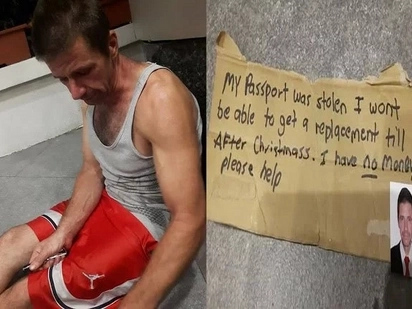 My Passport was stolen I wont
be able to get a replacement till
After Christmass. I have no Money
please help